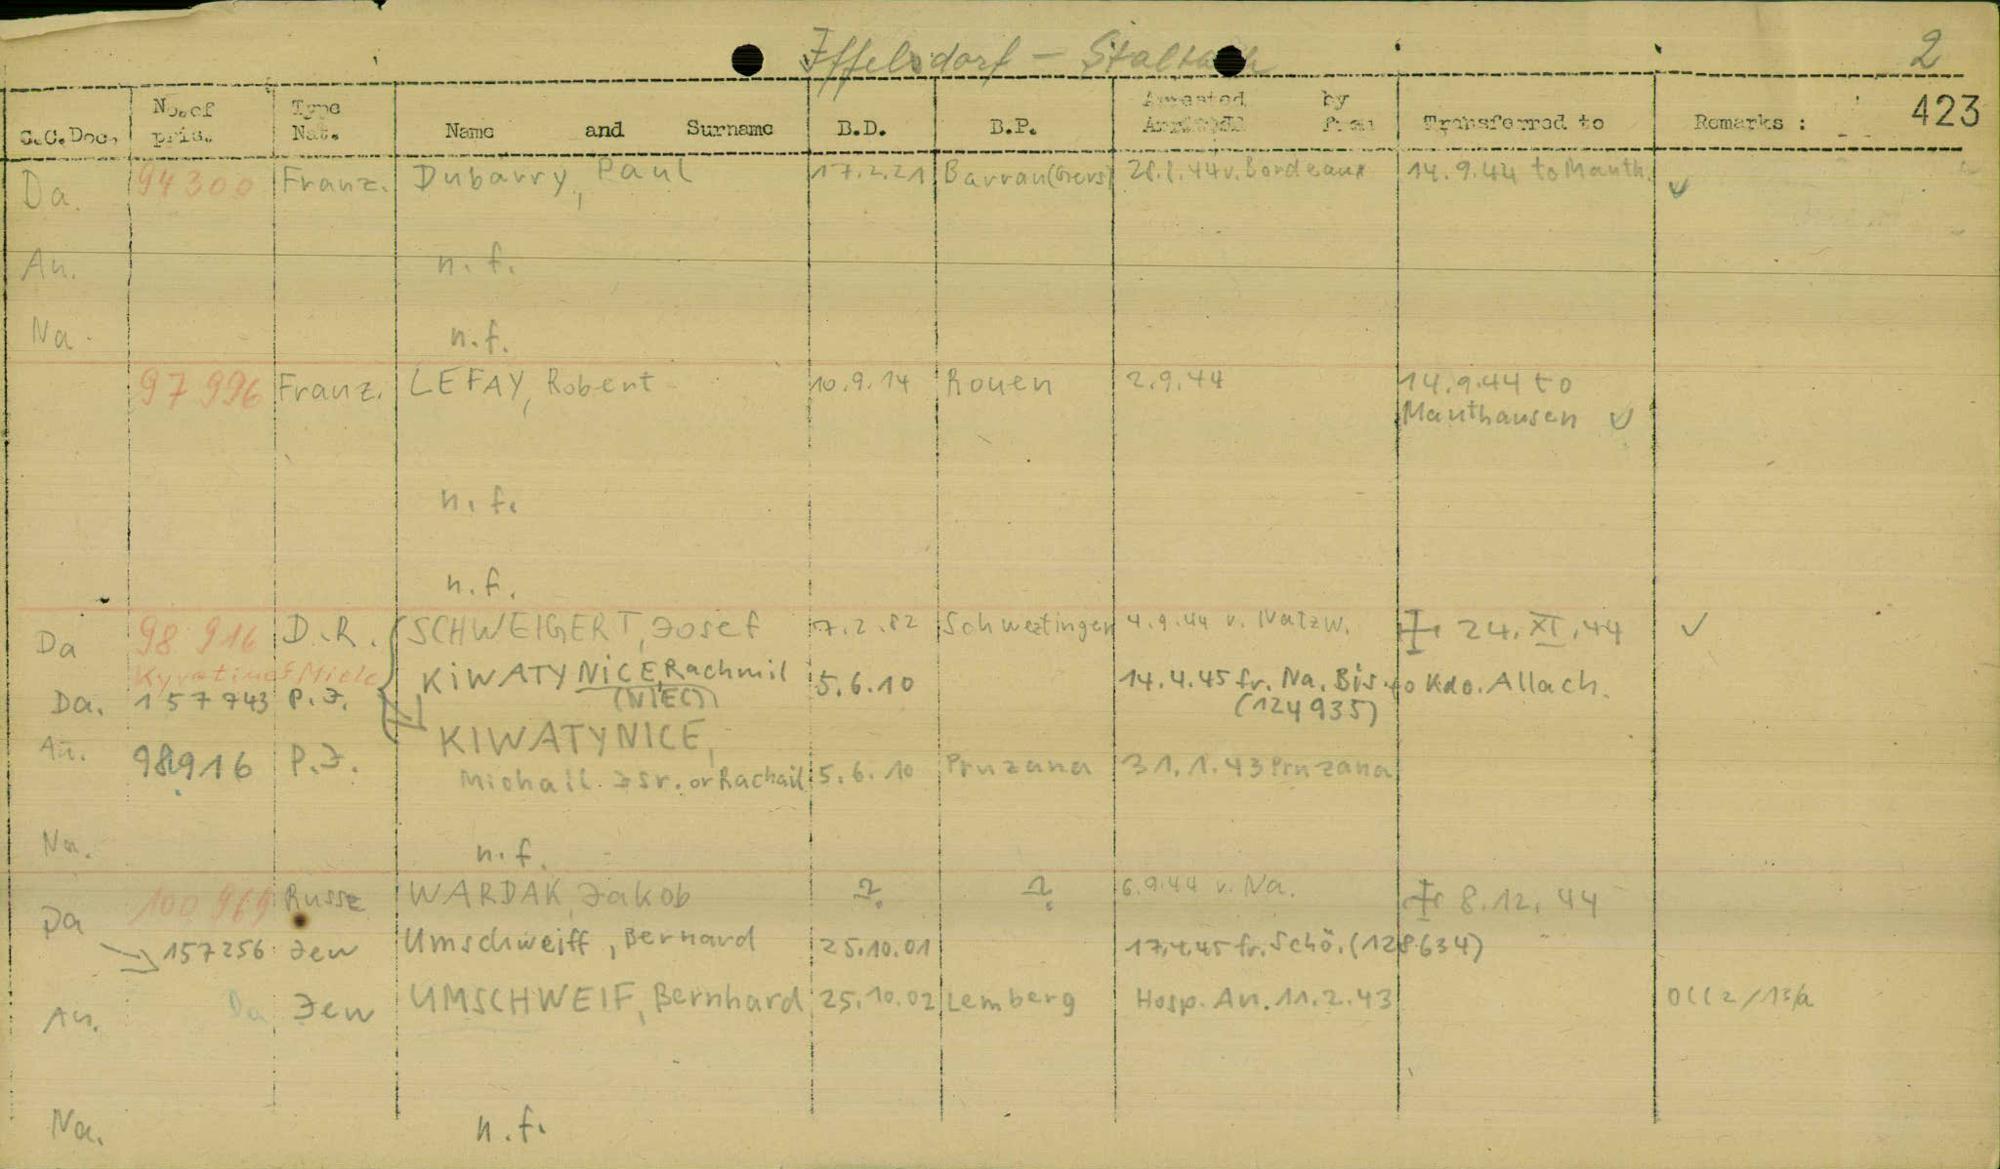 Iffelsdorf - Staltach 2
423
C.C.Doc. No. of pris. Type Nat. Name and Surname B.D. B.P. Arrested by from Transferred to Remarks :
Da. 94300 Franz. Dubarry, Paul 17.2.21 Barran(Gers) 28.8.44 v. Bordeaux 14.9.44 to Mauth.
An. n.f.
Na. n.f.
97 996 Franz. LEFAY, Robert 10.9.14 Rouen 2.9.44 14.9.44 to
Mauthausen
n.f.
n.f.
Da 98 916 D.R. SCHWEIGERT, Josef 7.2.82 Schwetzingen 4.9.44 v. Natzw. 24.XI.44
Da. 157743 P.J. KIWATYNICE, Rachmil 5.6.10 14.4.45 fr. Na. Bis. to Kdo. Allach.
(NIEC) (124935)
An. 98916 P.J. KIWATYNICE,
Michail Isr. or Rachail 5.6.10 Pruzana 31.1.43 Pruzana
Na. n.f.
Da 100 969 Russe WARDAK, Jakob ? ? 6.9.44 v. Na. 8.12.44
157256 Jew Umschweiff, Bernard 25.10.01 17.4.45 fr. Schö. (128634)
An. Da Jew UMSCHWEIF, Bernhard 25.10.02 Lemberg Hosp. An. 11.2.43 OCC 2/13/a
Na. n.f.